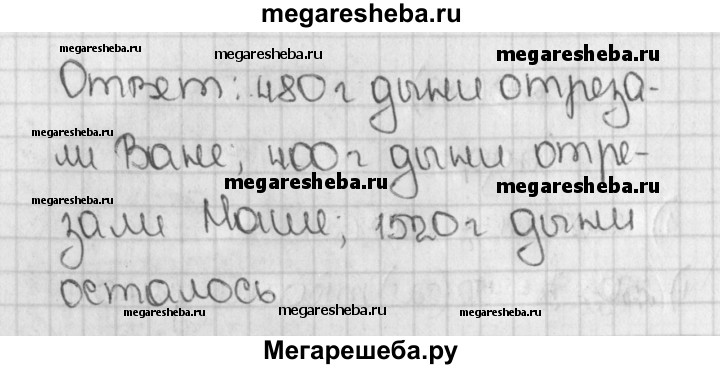 megaresheba.ru
megaresheba.ru megaresheba.ru megaresheba.ru
Ответ: 480 г дыни отреза-
megaresheba.ru megaresheba.ru
ли Ване; 400 г дыни отре-
megaresheba.ru megaresheba.ru megaresheba.ru
зали Маше; 1520 г дыни
осталось
megaresheba.ru megaresheba.ru megaresheba.ru
Мегарешеба.ру